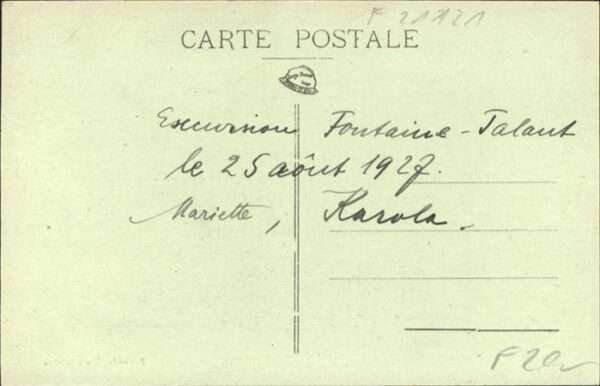 F 21121
CARTE POSTALE
Excursion Fontaine-Talant
le 25 août 1927.
Mariette, Karola.
F 20